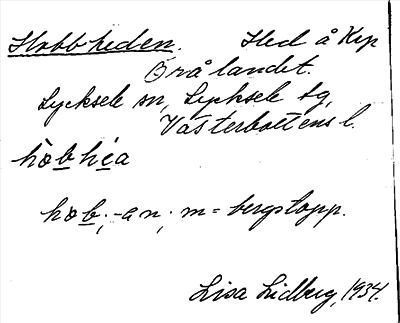 Hobbheden. Hed å Kkp
Örålandet.
Lycksele sn, Lycksele tg,
Västerbottens l.
hòbhéa
hob, -a n, m = bergstopp.
Lisa Lidberg, 1934.